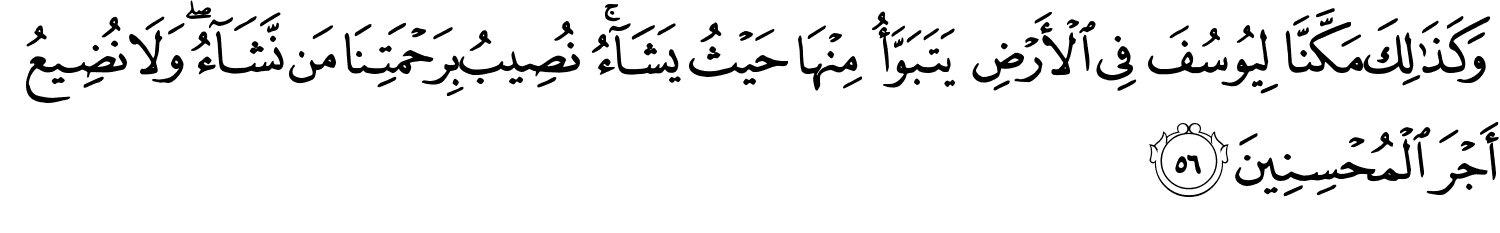 وَكَذَٰلِكَ مَكَّنَّا لِيُوسُفَ فِى ٱلْأَرْضِ يَتَبَوَّأُ مِنْهَا حَيْثُ يَشَآءُ ۚ نُصِيبُ بِرَحْمَتِنَا مَن نَّشَآءُ ۖ وَلَا نُضِيعُ
أَجْرَ ٱلْمُحْسِنِينَ ٥٦